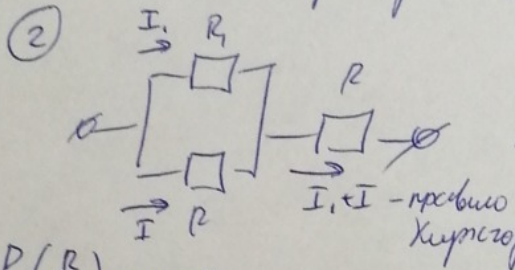 ②
I₁ R₁
R
I R
I₁+I - правило
Кирхгоф
P(R)